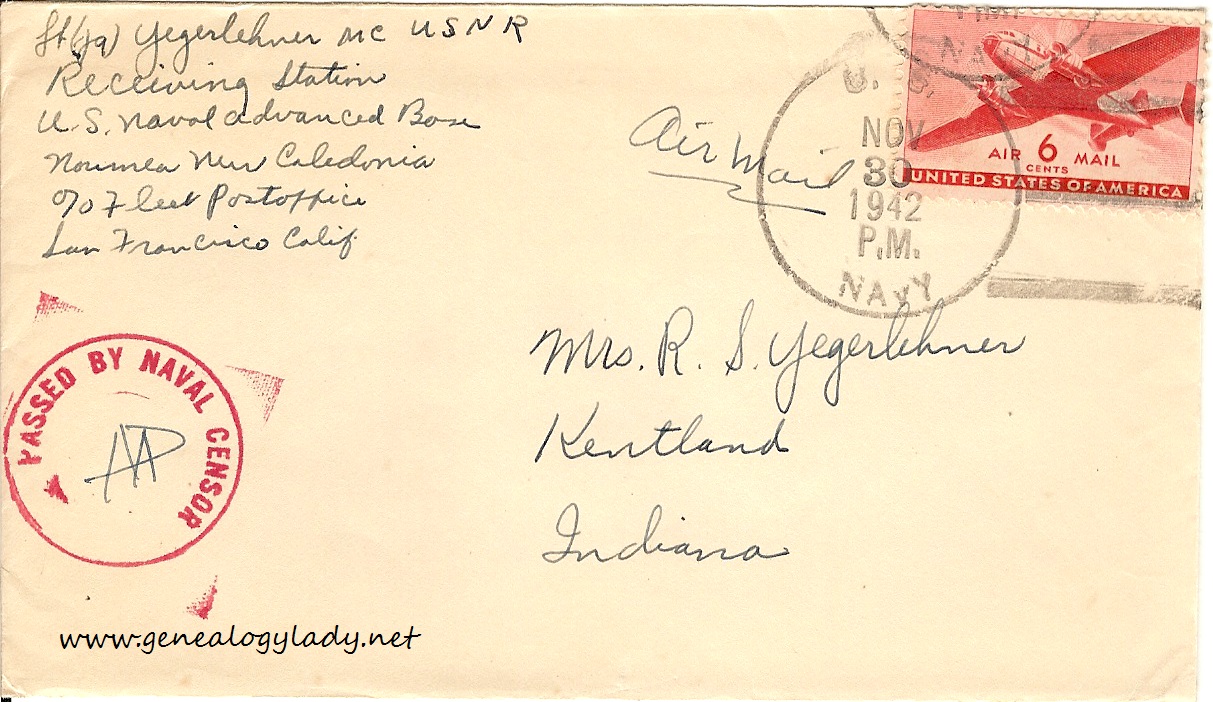 Lt(jg) Yegerlehner MC USNR
Receiving Station
U.S. Naval advanced Base
Noumea New Caledonia
c/o Fleet Postoffice
San Francisco Calif.
Air Mail
U. S.
NAVY
NOV
30
1942
P.M.
NAVY
AIR 6 MAIL
CENTS
UNITED STATES OF AMERICA
Mrs. R. S. Yegerlehner
Kentland
Indiana
PASSED BY NAVAL CENSOR
www.genealogylady.net